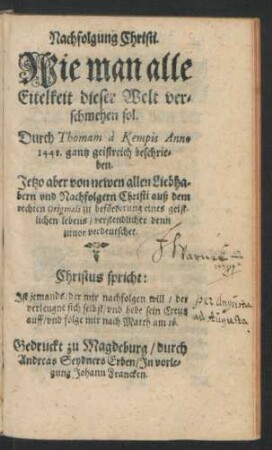 Nachfolgung Christi.
Wie man alle
Eitelkeit dieser Welt ver-
schmehen sol.
Durch Thomam à Kempis Anno
1441. gantz geistreich beschrie-
ben.
Jetzo aber von newen allen Liebha-
bern und Nachfolgern Christi auß dem
rechten Originali zu beförderung eines geist-
lichen lebens / verstendlicher denn
zuuor verdeutschet.
Christus spricht:
Ist jemands / der mir nachfolgen will / der
verleugne sich selbst / vnd hebe sein Creutz
auff / vnd folge mir nach Matth am 16.
per
ad Augusta
Gedruckt zu Magdeburg / durch
Andreas Seydners Erben / In vorle-
gung Johann Francken.